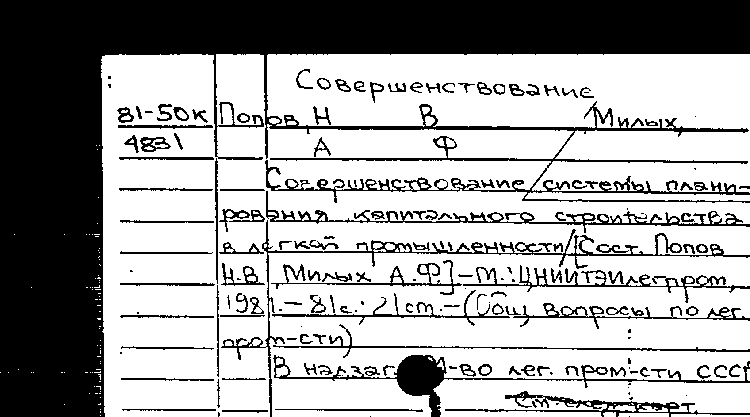 Совершенствование
81-50к Попов, Н В Милых,
4831 А Ф
Совершенствование системы плани-
рования капитального строительства
в легкой промышленности / [Сост. Попов
Н.В., Милых А.Ф.] – М.: ЦНИИТЭИлегпром,
1981. – 81с.; 21см. – (Общ. вопросы по лег.
пром-сти)
В надзаг. М-во лег. пром-сти СССР